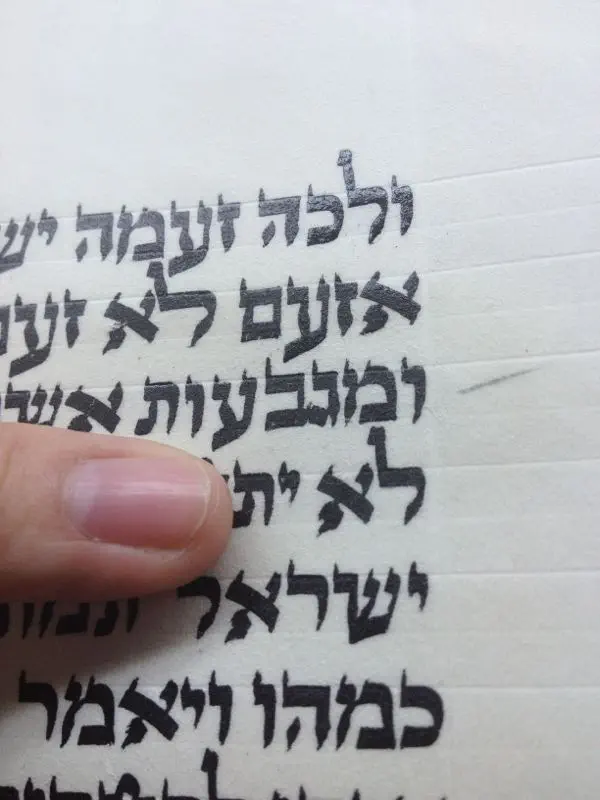 ולכה זעמה יש
אזעם לא זעם
ומגבעות אש
לא ית
ישראל תמות
כמהו ויאמר